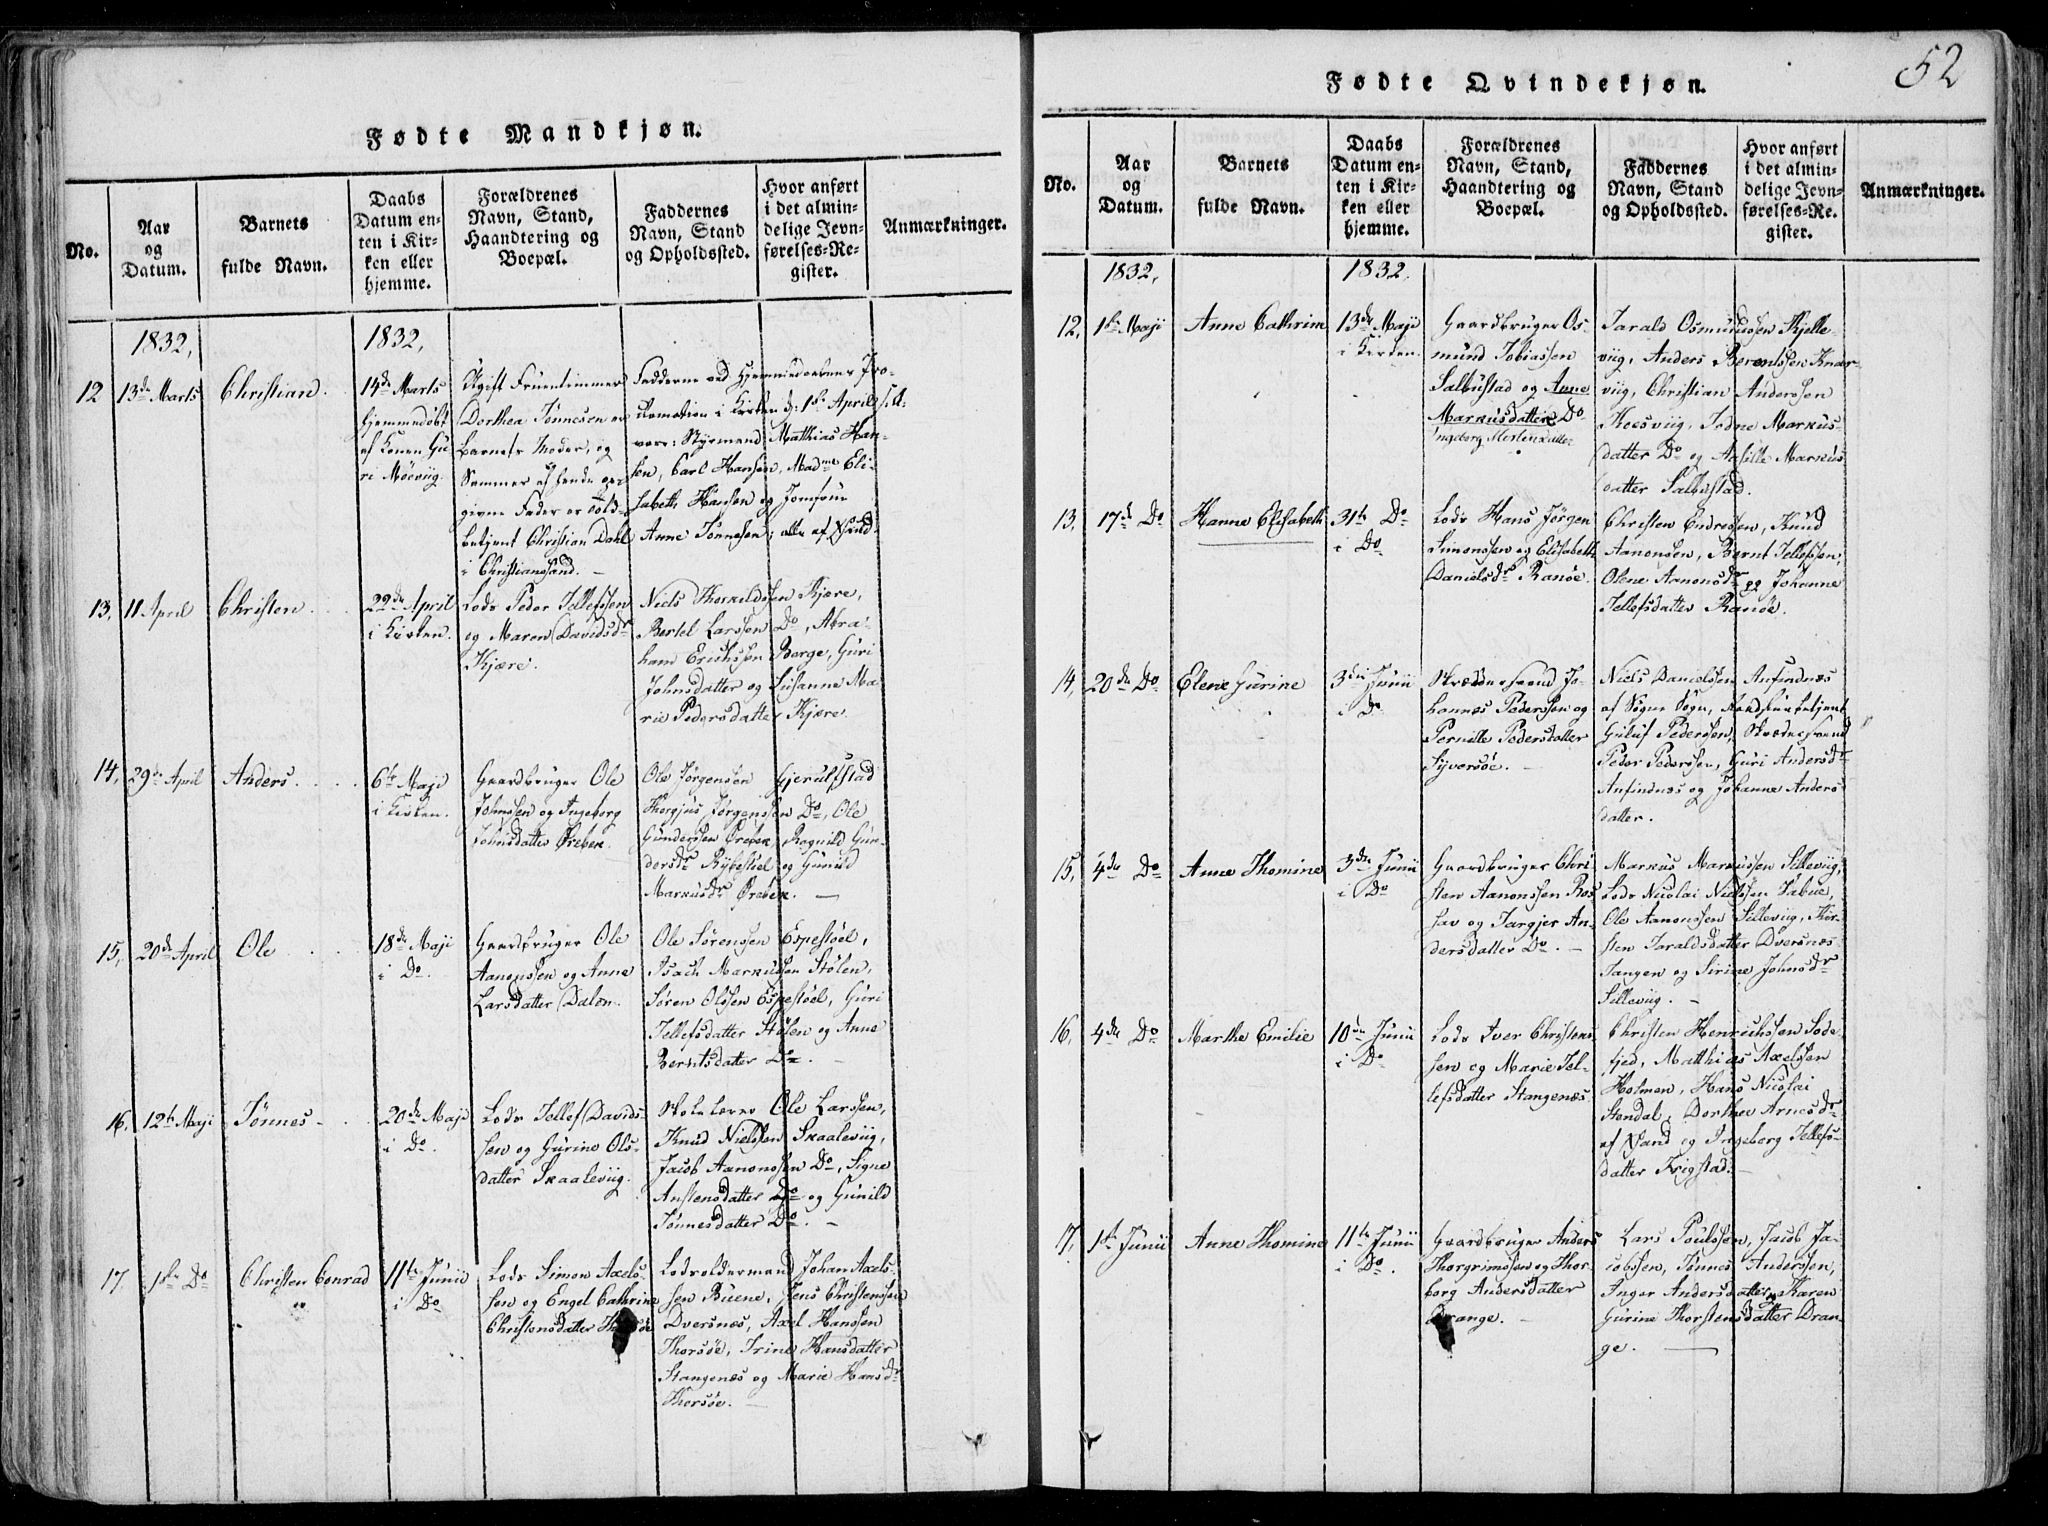 Fødte Mandkjøn.
No.
Aar
og
Datum.
Barnets
fulde Navn.
Daabs
Datum en-
ten i Kir-
ken eller
hjemme.
Forældrenes
Navn, Stand,
Haandtering og
Boepæl.
Faddernes
Navn, Stand
og Opholdssted.
Hvor anført
i det almin-
delige Jevn-
førelses-Re-
gister.
Anmærkninger.
1832,
1832,
12
13de Marts
Christian
14de Marts
hjemmedøbt
af Konen Gu
ri Møevig
Ugift Fruentimmer
Dorthea Tønnesen er
Barnets Moder, og
givne Fader er Told-
betjent Christian Dahl
i Christianssand.
Fadderne ved Hjemmedaabens Pro-
i Kirken d: 1ste April
vare: Styrmand Matthias Han-
sen, Carl Hansen, Madme Eli-
sabeth Hansen og Jomfrue
Anne Tønnesen; alle af
13,
11 April
Christen
22de April
i Kirken.
Lods Peder Tellefssen
og Maren Davidsdr
Kjære.
Niels Thorkildssen Kjære,
Bertel Larssen Do, Abra-
ham Erichssen Borge, Guri
Johnsdatter og Susanne Ma
rie Pedersdatter Kjære.
14,
29de April
Anders
6te Maji
i Kirken.
Gaardbruger Ole
Johnssen og Ingeborg
Johnsdatter Ørebek
Ole Jørgensen Gjerulfstad
Thorgjus Jørgenssen Do, Ole
Gunderssen Ørebek, Ragnild Gun-
dersdr Rybestøl og Gunild
Markusdr Ørebek.
15,
20de April
Ole
18de Maji
i Do.
Gaardbruger Ole
Aanonssen og Anne
Larsdatter Dalen.
Ole Sørenssen Espestøel,
Isach Markussen Stølen,
Søren Olssen Espestøel, Guri
Tellefsdatter Stølen og Anne
Berntsdatter Do.
16,
12te Maji
Tønnes
20de Maji
i Do.
Lods Tellef Davids-
sen og Gurine Ols-
datter Skaalevig.
Skolelærer Ole Larssen,
Knud Nielssen Skaalevig,
Jacob Aanonssen Do, Signe
Anstensdatter Do og Gunild
Tønnesdatter Do.
17,
1ste Do
Christen Conrad
11te Junii
i Do
Lods Simon Axels-
sen og Engel Cathrine
Christensdatter
Lodsoldermand Johan Axels-
sen Buene, Jens Christenssen
Dversnes, Axel Hanssen
Thorsøe, Trine Hansdatter
Stangenæs og Marie Hansdr
Thorsøe.
52
Fødte Qvindekjøn.
No.
Aar
og
Datum.
Barnets
fulde Navn.
Daabs
Datum en-
ten i Kir-
ken eller
hjemme.
Forældrenes
Navn, Stand,
Haandtering og
Boepæl.
Faddernes
Navn, Stand
og Opholdssted.
Hvor anført
i det almin-
delige Jevn-
førelses-Re-
gister.
Anmærkninger.
1832,
1832.
12,
1ste Maji
Anne Cathrine
13de Maji
i Kirken.
Gaardbruger Os-
mund Tobiassen
Salbustad og Anne
Markusdatter Do
Ingeborg Mortensdatter
Tarald Osmundssen Kjelle-
viig, Anders Berentssen Knar-
viig, Christian Anderssen
Koesviig, Todne Markus-
datter Do og Aasille Markus
datter Salbustad.
13,
17de Do
Hanne Elisabeth
31te Do
i Do
Lods Hans Jørgen
Simonssen og Elisabeth
Danielsdr Randøe.
Christen Endressen, Knud
Aanonsen, Bernt Tellefssen,
Olene Aanonsdr og Johanne
Tellefsdatter Randøe.
14,
20de Do
Elene Gurine
3die Junii
i Do.
Skræddersvend Jo-
hannes Pederssen og
Pernille Pedersdatter
Syversøe.
Niels Danielssen Anfindnæs
af Søgne Sogn,
Guluf Pederssen, Skrædersvend
Peder Pederssen, Guri Andersdr
Anfindnæs og Johanne Anders
datter.
15,
4de Do
Anne Thomine
3die Junii
i Do
Gaardbruger Chri
sten Aanonssen Ros
sav og Targjer An-
dersdatter Do.
Markus Markussen Sillevig,
Lods Nicolai Nielssen
Ole Aanonssen Sillevig, Kir-
sten Taraldsdatter Dversnes-
Tangen og Sirine Johnsdr
Sillevig.
16,
4de Do
Marthe Emilie
10de Junii
i Do
Lods Iver Christens
sen og Marie Tel-
lefsdatter Stangenæs.
Christen Henrichssen Lode
fjed, Matthias Axelssen
Holmen, Hans Nicolai
Stendal, Dorthe Arnesdr
af og Ingeborg Tellefs-
datter Frigstad.
17,
1ste Junii
Anne Thomine
11te Junii
i Do.
Gaardbruger Anders
Thorgrimssen og Thor-
borg Andersdatter
Drange.
Lars Poulssen, Jacob Ja-
cobssen, Tønnes Anderssen,
Inger Andersdatter, Karen
Gurine Thorstensdatter Dran-
ge.